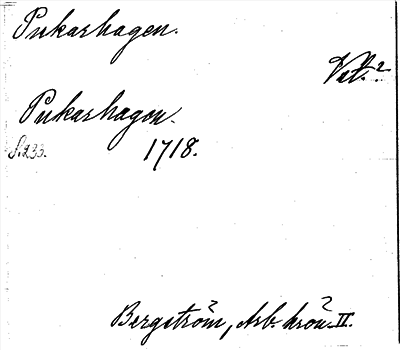 Pukarhagen.
Vät. 2
Pukarhagen.
S. 233. 1718.
Bergström, Arb. krön. II.